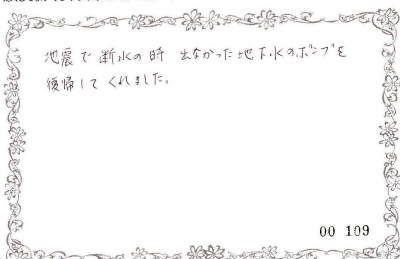 地震で断水の時 出なかった地下水のポンプを
復帰してくれました。
00 109